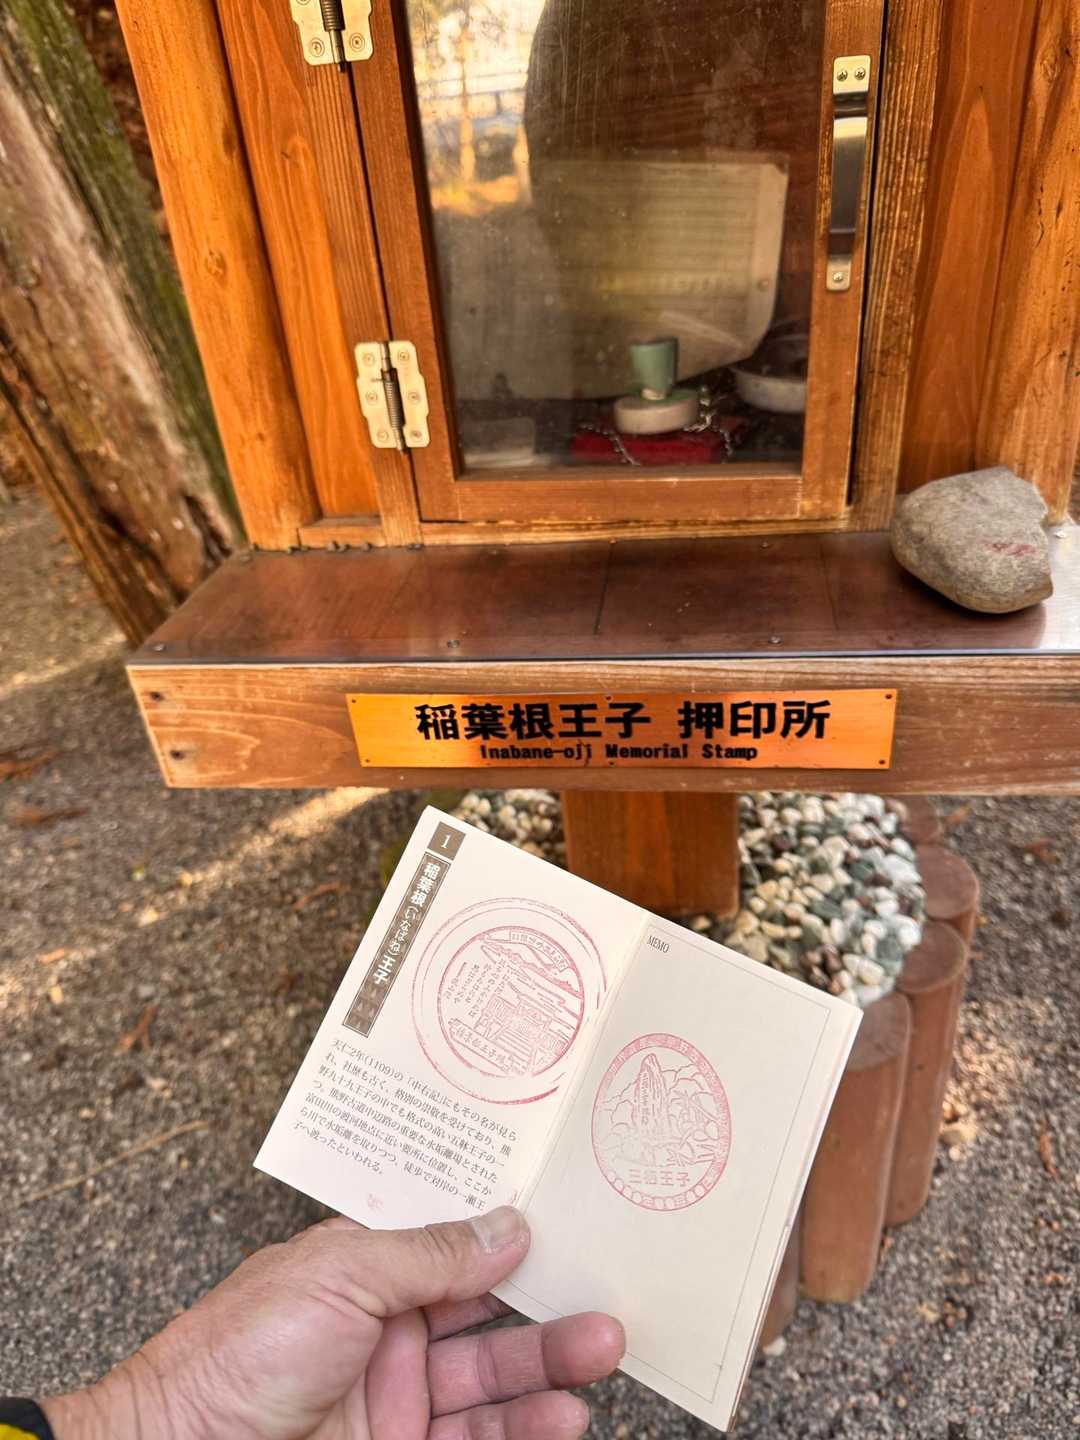 稲葉根王子 押印所
Inabane-oji Memorial Stamp
1
稲葉根(いなばね)王子
天仁2年(1109)の「中右記」にもその名が見ら
れ、社歴も古く、格別の崇敬を受けており、熊
野九十九王子の中でも格式の高い五躰王子の一
つ。熊野古道中辺路の重要な水垢離場とされた
富田川の渡河地点に近い要所に位置し、ここか
ら川で水垢離を取りつつ、徒歩で対岸の一瀬王
子へ渡ったといわれる。
MEMO
三栖王子